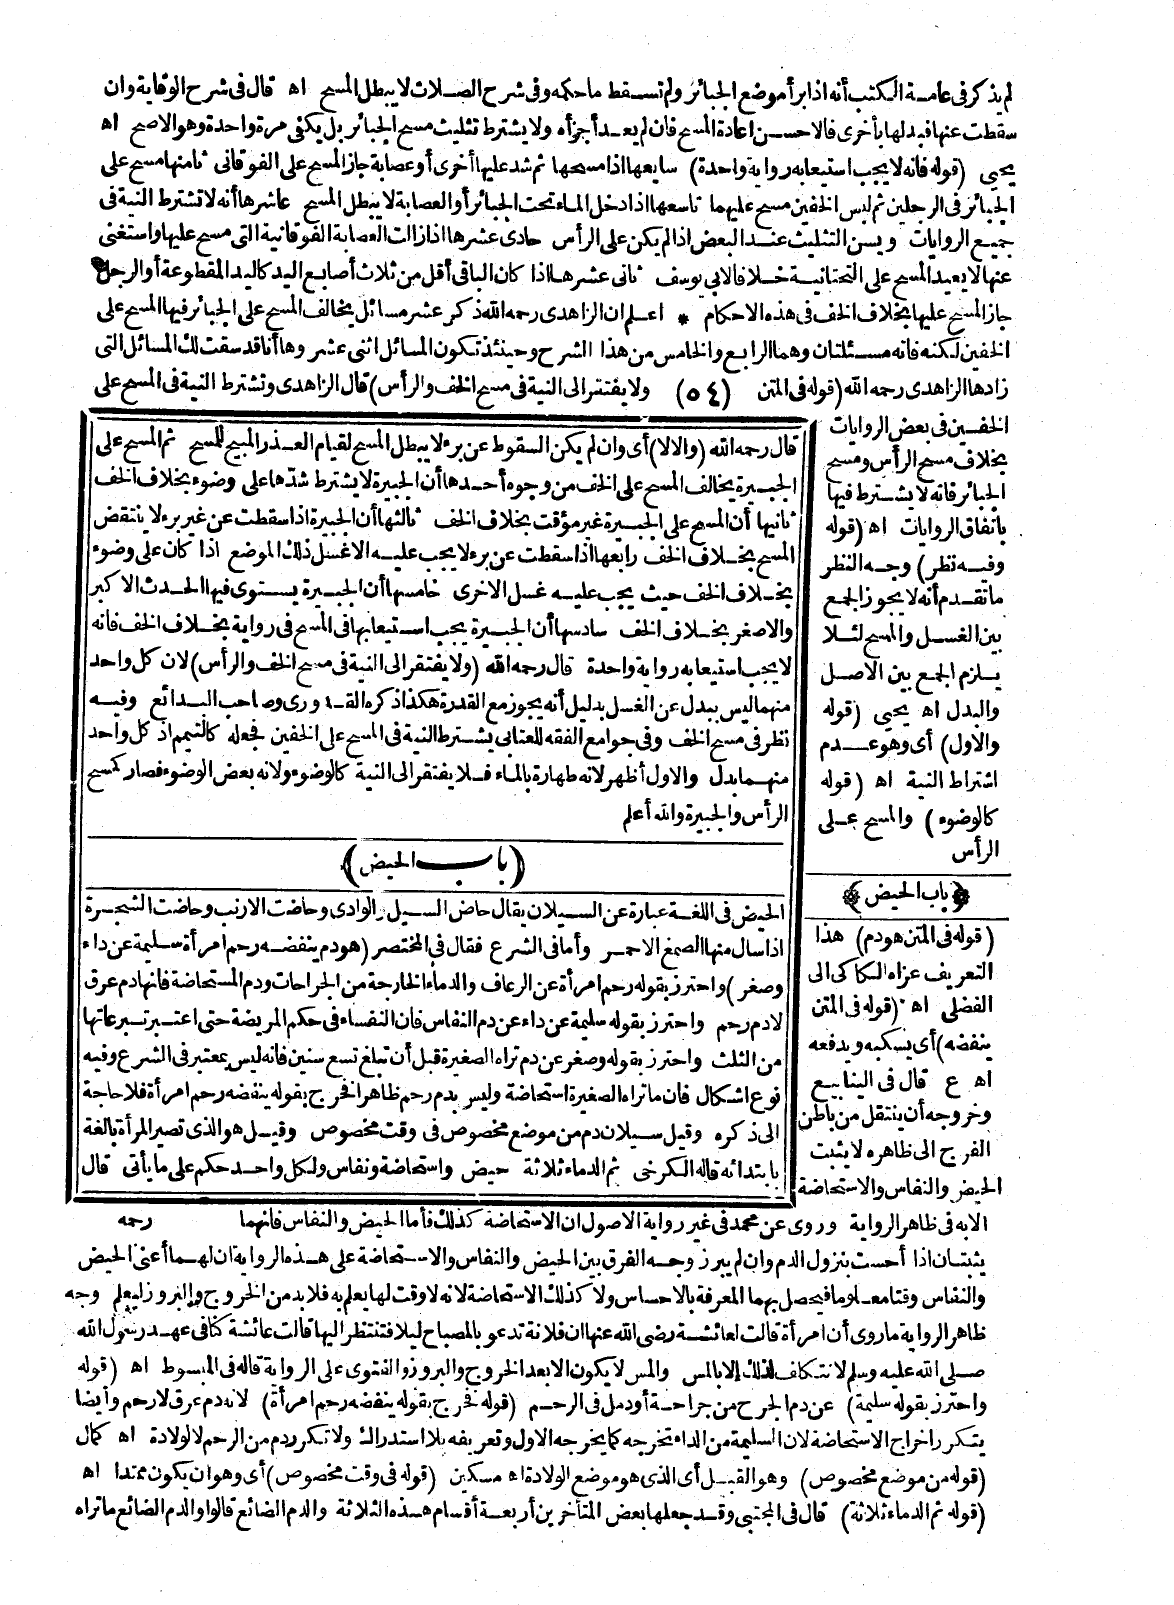 لم يذكر في عامة الكتب أنه اذا برأ موضع الجبائر ولم تسقط ما حكمه وفي شرح الصلات لا يبطل المسح اه قال في شرح الوقاية وان
سقطت عنها فبدلها بأخرى فالاحسن اعادة المسح فان لم يعد أجزأه ولا يشترط تثليث مسح الجبائر بل يكفي مرة واحدة وهو الاصح اه
يحيى (قوله فانه لا يجب استيعابه رواية واحدة) سابعها اذا مسحها ثم شد عليها أخرى أو عصابة جاز المسح على الفوقاني ثامنها مسح على
الجبائر في الرجلين ثم لبس الخفين مسح عليهما تاسعها اذا دخل الماء تحت الجبائر أو العصابة لا يبطل المسح عاشرها أنه لا تشترط النية في
جميع الروايات ويسن التثليث عند البعض اذا لم يكن على الرأس حادى عشرها اذا زالت العصابة الفوقانية التى مسح عليها واستغنى
عنها لا يعيد المسح على التحتانية خلافا لابي يوسف ثانى عشرها اذا كان الباقى أقل من ثلاث أصابع اليد كاليد المقطوعة أو الرجل
جاز المسح عليها بخلاف الخف في هذه الاحكام * اعلم ان الزاهدى رحمه الله ذكر عشر مسائل يخالف المسح على الجبائر فيها المسح على
الخفين لكنه فاته مسئلتان وهما الرابع والخامس من هذا الشرح وحينئذ تكون المسائل اثنى عشر وها أنا قد سقت لك المسائل التى
زادها الزاهدى رحمه الله (قوله في المتن (٥٤) ولا يفتقر الى النية في مسح الخف والرأس) قال الزاهدى وتشترط النية في المسح على
الخفين في بعض الروايات
بخلاف مسح الرأس ومسح
الجبائر فانه لا يشترط فيها
باتفاق الروايات اه (قوله
وفيه نظر) وجه النظر
ما تقدم أنه لا يجوز الجمع
بين الغسل والمسح لئلا
يلزم الجمع بين الاصل
والبدل اه يحيى (قوله
والاول) أى وهو عدم
اشتراط النية اه (قوله
كالوضوء) والمسح على
الرأس
﴿باب الحيض﴾
(قوله في المتن هو دم) هذا
التعريف عزاه السكاكى الى
الفضلى اه (قوله في المتن
ينفضه) أى يسكبه ويدفعه
اه ع قال في الينابيع
وخروجه أن ينتقل من باطن
الفرج الى ظاهره لا يثبت
الحيض والنفاس والاستحاضة
قال رحمه الله (والا لا) أى وان لم يكن السقوط عن برء لا يبطل المسح لقيام العذر المبيح للمسح ثم المسح على
الجبيرة يخالف المسح على الخف من وجوه أحدها أن الجبيرة لا يشترط شدها على وضوء بخلاف الخف
ثانيها أن المسح على الجبيرة غير مؤقت بخلاف الخف ثالثها أن الجبيرة اذا سقطت عن غير برء لا ينتقض
المسح بخلاف الخف رابعها اذا سقطت عن برء لا يجب عليه الا غسل ذلك الموضع اذا كان على وضوء
بخلاف الخف حيث يجب عليه غسل الاخرى خامسها أن الجبيرة يستوى فيها الحدث الاكبر
والاصغر بخلاف الخف سادسها أن الجبيرة يجب استيعابها فى المسح فى رواية بخلاف الخف فانه
لا يجب استيعابه رواية واحدة قال رحمه الله (ولا يفتقر الى النية فى مسح الخف والرأس) لان كل واحد
منهما ليس ببدل عن الغسل بدليل أنه يجوز مع القدرة هكذا ذكره القدورى وصاحب البدائع وفيه
نظر فى مسح الخف وفى جوامع الفقه للعتابى يشترط النية فى المسح على الخفين فجعله كالتيمم اذ كل واحد
منهما بدل والاول أظهر لانه طهارة بالماء فلا يفتقر الى النية كالوضوء ولانه بعض الوضوء فصار كمسح
الرأس والجبيرة والله أعلم
(باب الحيض)
الحيض فى اللغة عبارة عن السيلان يقال حاض السيل والوادى وحاضت الارنب وحاضت الشجرة
اذا سال منها الصمغ الاحمر وأما فى الشرع فقال فى المختصر (هو دم ينفضه رحم امرأة سليمة عن داء
وصغر) واحترز بقوله رحم امرأة عن الرعاف والدماء الخارجة من الجراحات ودم المستحاضة فانها دم عرق
لا دم رحم واحترز بقوله سليمة عن داء عن دم النفاس فان النفساء فى حكم المريضة حتى اعتبر تبرعاتها
من الثلث واحترز بقوله وصغر عن دم تراه الصغيرة قبل أن تبلغ تسع سنين فانه ليس بمعتبر فى الشرع وفيه
نوع اشكال فان ما تراه الصغيرة استحاضة وليس بدم رحم ظاهرا فخرج بقوله ينفضه رحم امرأة فلا حاجة
الى ذكره وقيل سيلان دم من موضع مخصوص فى وقت مخصوص وقيل هو الذى تصير المرأة بالغة
بابتدائه قاله الكرخى ثم الدماء ثلاثة حيض واستحاضة ونفاس ولكل واحد حكم على ما يأتى قال
الا به فى ظاهر الرواية وروى عن محمد فى غير رواية الاصول ان الاستحاضة كذلك فأما الحيض والنفاس فانهما رحمه
يثبتان اذا أحست بنزول الدم وان لم يبرز وجه الفرق بين الحيض والنفاس والاستحاضة على هذه الرواية ان لهما أعنى الحيض
والنفاس وقتا معلوما فيحصل بهما المعرفة بالاحساس ولا كذلك الاستحاضة لانه لا وقت لها يعلم به فلا بد من الخروج والبروز ليعلم وجه
ظاهر الرواية ما روى أن امرأة قالت لعائشة رضى الله عنها ان فلانة تدعو بالمصباح ليلا فتنظر اليها قالت عائشة كنا فى عهد رسول الله
صلى الله عليه وسلم لا نتكلف لذلك الا بالمس والمس لا يكون الا بعد الخروج والبروز والفتوى على الرواية قاله فى المبسوط اه (قوله
واحترز بقوله سليمة) عن دم الجرح من جراحة أو دمل فى الرحم (قوله فخرج بقوله ينفضه رحم امرأة) لانه دم عرق لا رحم وأيضا
يتكرر اخراج الاستحاضة لان السليمة من الداء تخرجه كما يخرجه الاول وتعريفه بلا استدراك ولا تكرر دم من الرحم لا لولادة اه كمال
(قوله من موضع مخصوص) وهو القبل أى الذى هو موضع الولادة اه مسكين (قوله فى وقت مخصوص) أى وهو ان يكون ممتدا اه
(قوله ثم الدماء ثلاثة) قال فى المجتبى وقد جعلها بعض المتأخرين أربعة أقسام هذه الثلاثة والدم الضائع قالوا والدم الضائع ما تراه